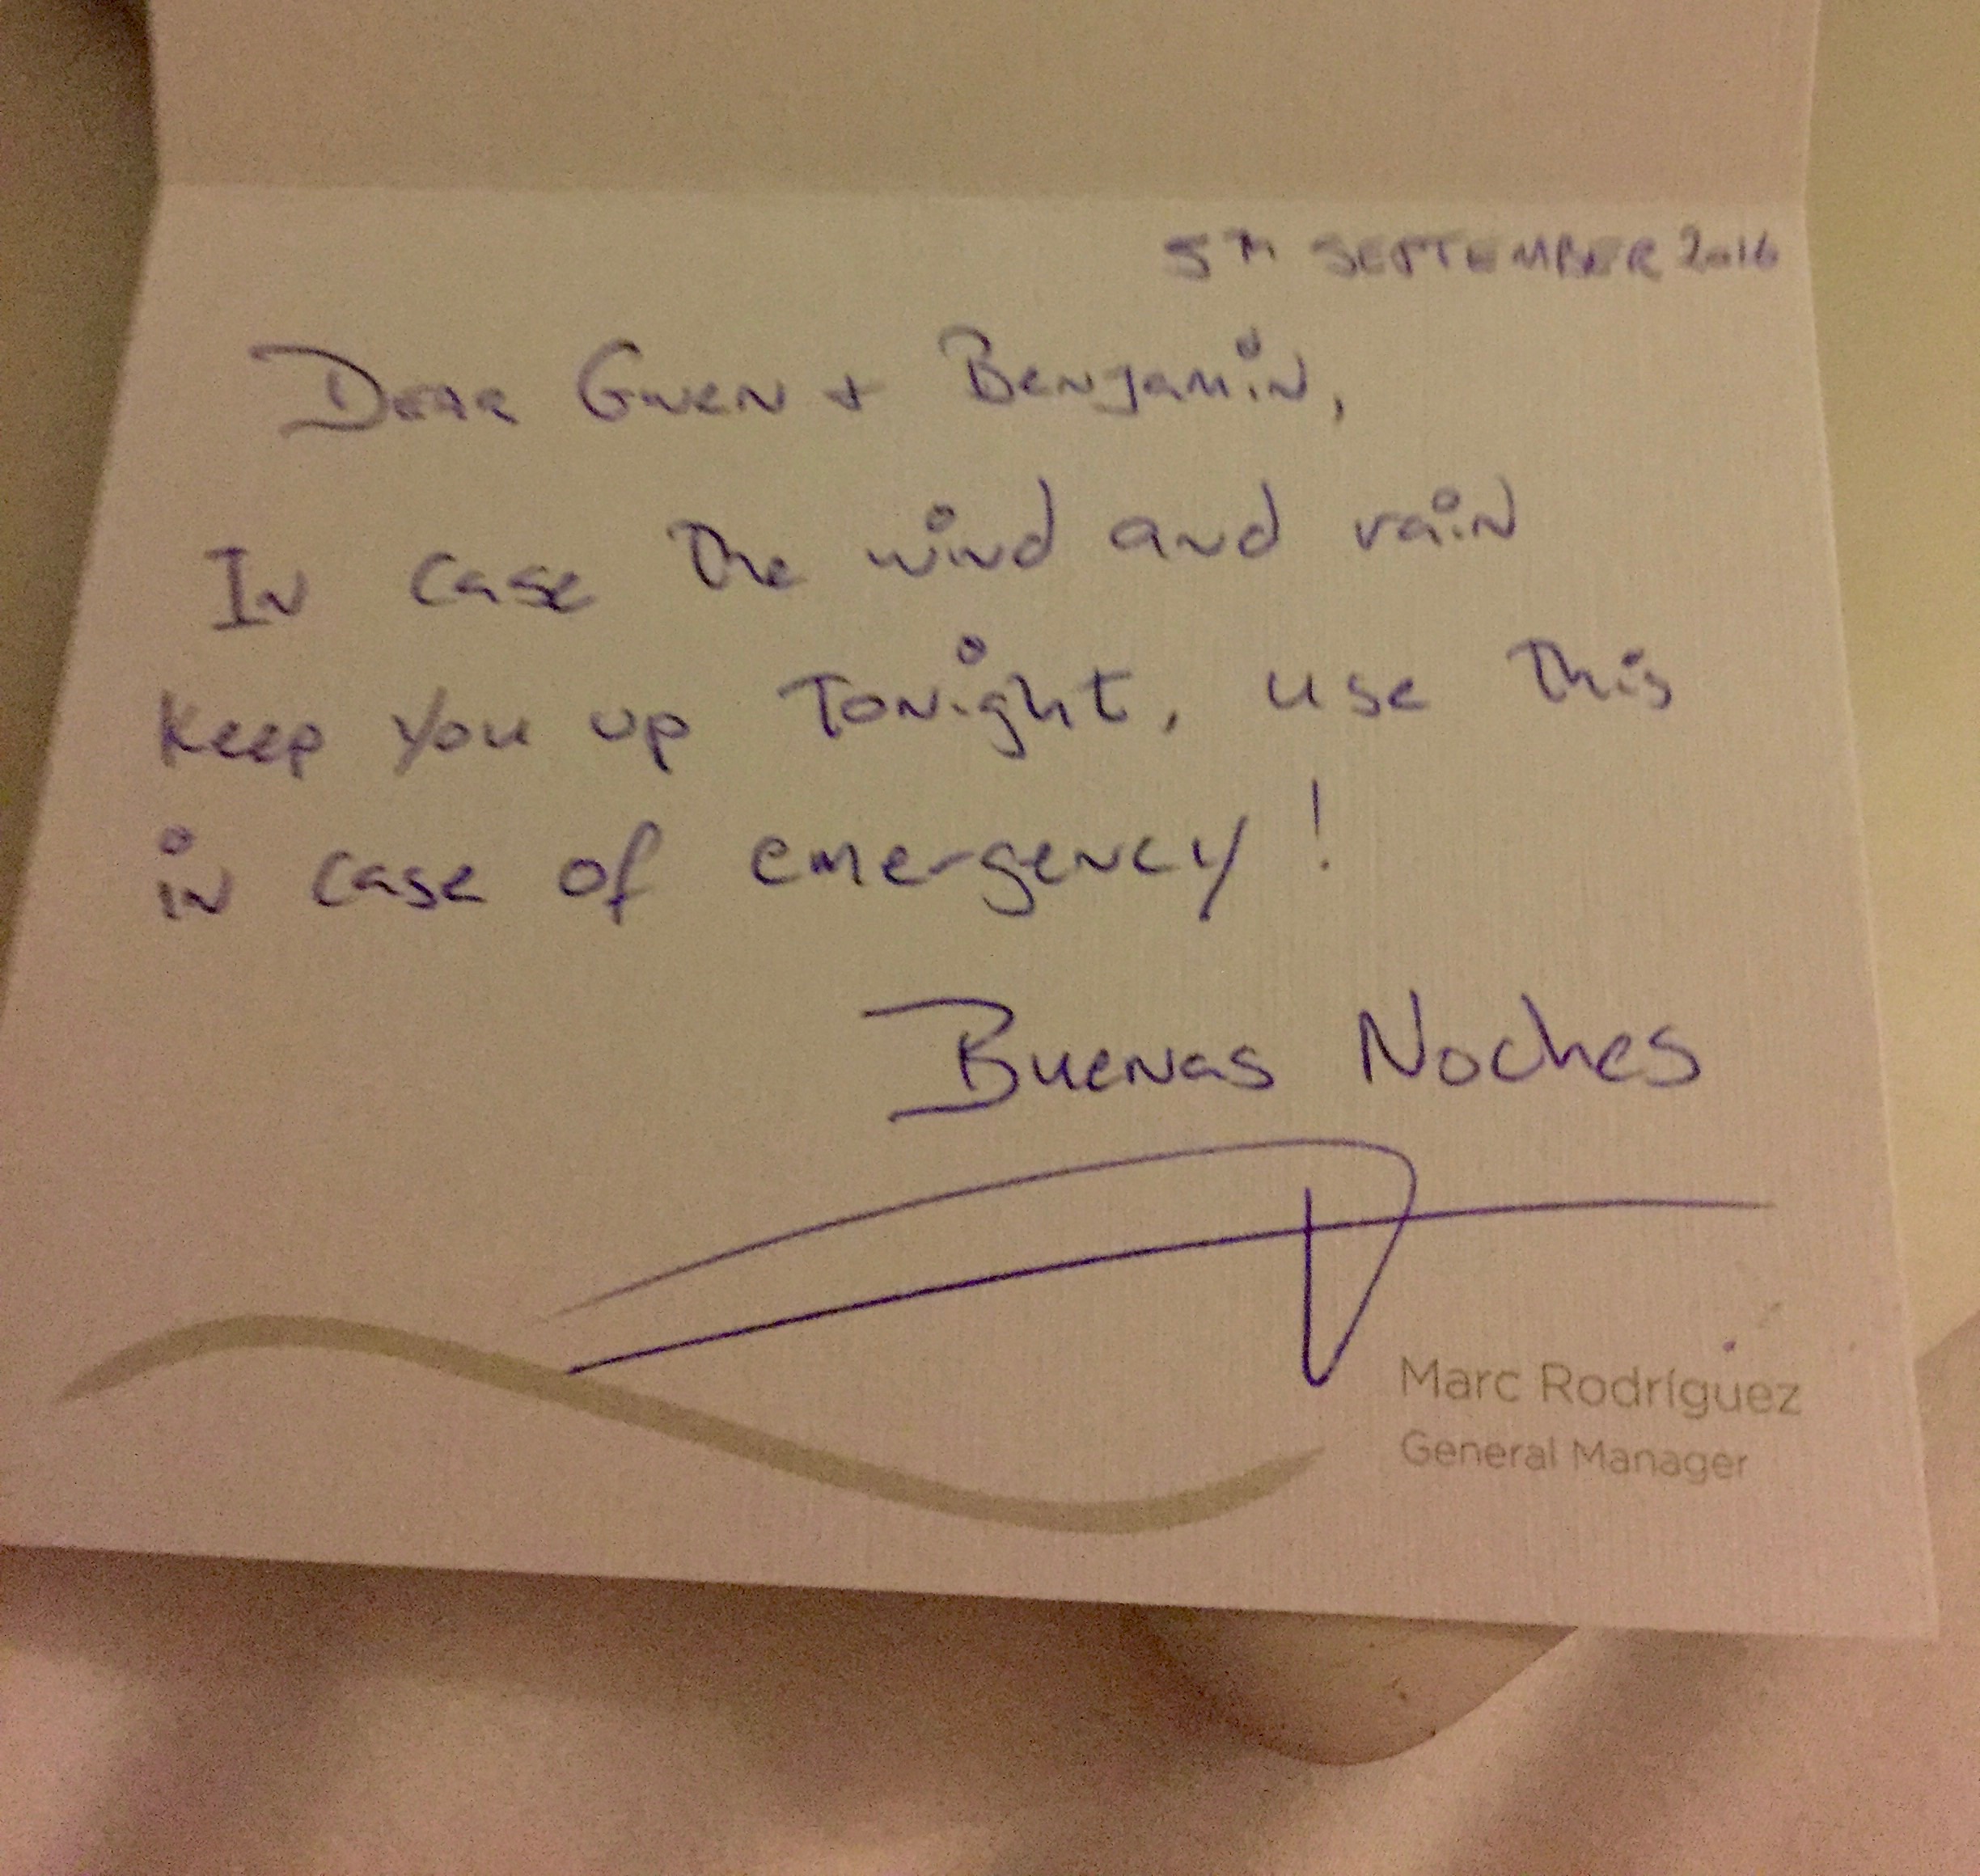 5TH SEPTEMBER 2016
Dear Gwen + Benjamin,
In case the wind and rain
keep you up tonight, use this
in case of emergency!
Buenas Noches
Marc Rodríguez
General Manager